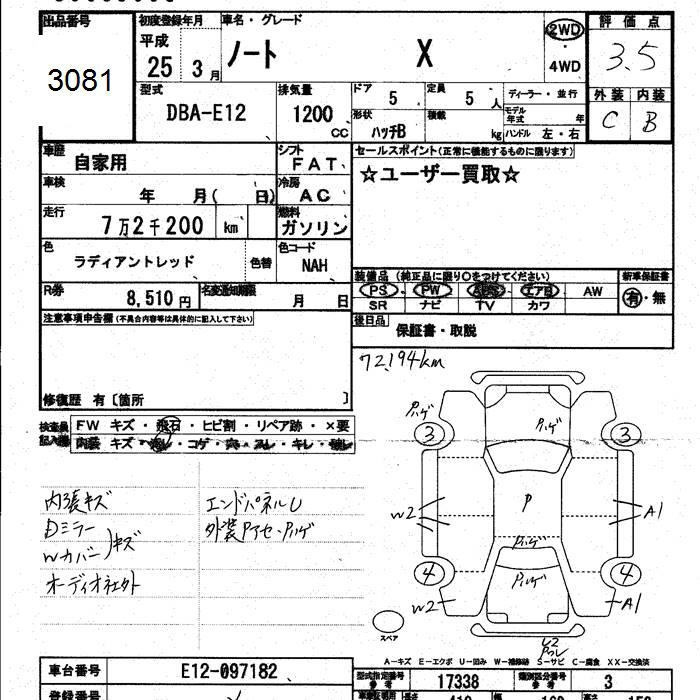 出品番号 初度登録年月 車名・グレード 評価点
3081 平成 25 3月 ノート X 2WD・4WD 3.5
型式 排気量 ドア 定員 ディーラー・並行 外装 内装
DBA-E12 1200cc 5 5人 モデル年式 年 C B
形状 ハッチB 積載 kg ハンドル 左・右
車歴 自家用 シフト FAT セールスポイント(正常に機能するものに限ります)
車検 年 月( 日) 冷房 AC ☆ユーザー買取☆
走行 7万2千200 km 燃料 ガソリン
色 ラディアントレッド 色替 色コード NAH
装備品(純正品に限り○をつけてください) 新車保証書
PS PW エアB AW 有・無
SR ナビ TV カワ
R券 8,510円 名変通知期限 月 日
後日品 保証書・取説
注意事項申告欄(不具合内容等は具体的に記入して下さい)
72,194km
修復歴 有〔箇所 〕
検査員記入欄 FW キズ・飛石・ヒビ割・リペア跡・×要
内張キズ エンドパネルU
Dミラー 外装Pアセ・Pハゲ
Wカバー)キズ
Pハゲ Pハゲ
3 3
W2 P A1
Pハゲ
4 Pハゲ 4
W2 A1
スペア
U2
A-キズ E-エクボ U-凹み W-補修跡 S-サビ C-腐食 XX-交換済
車台番号 E12-097182 型式指定番号 参考 17338 類別区分番号 参考 3
登録番号